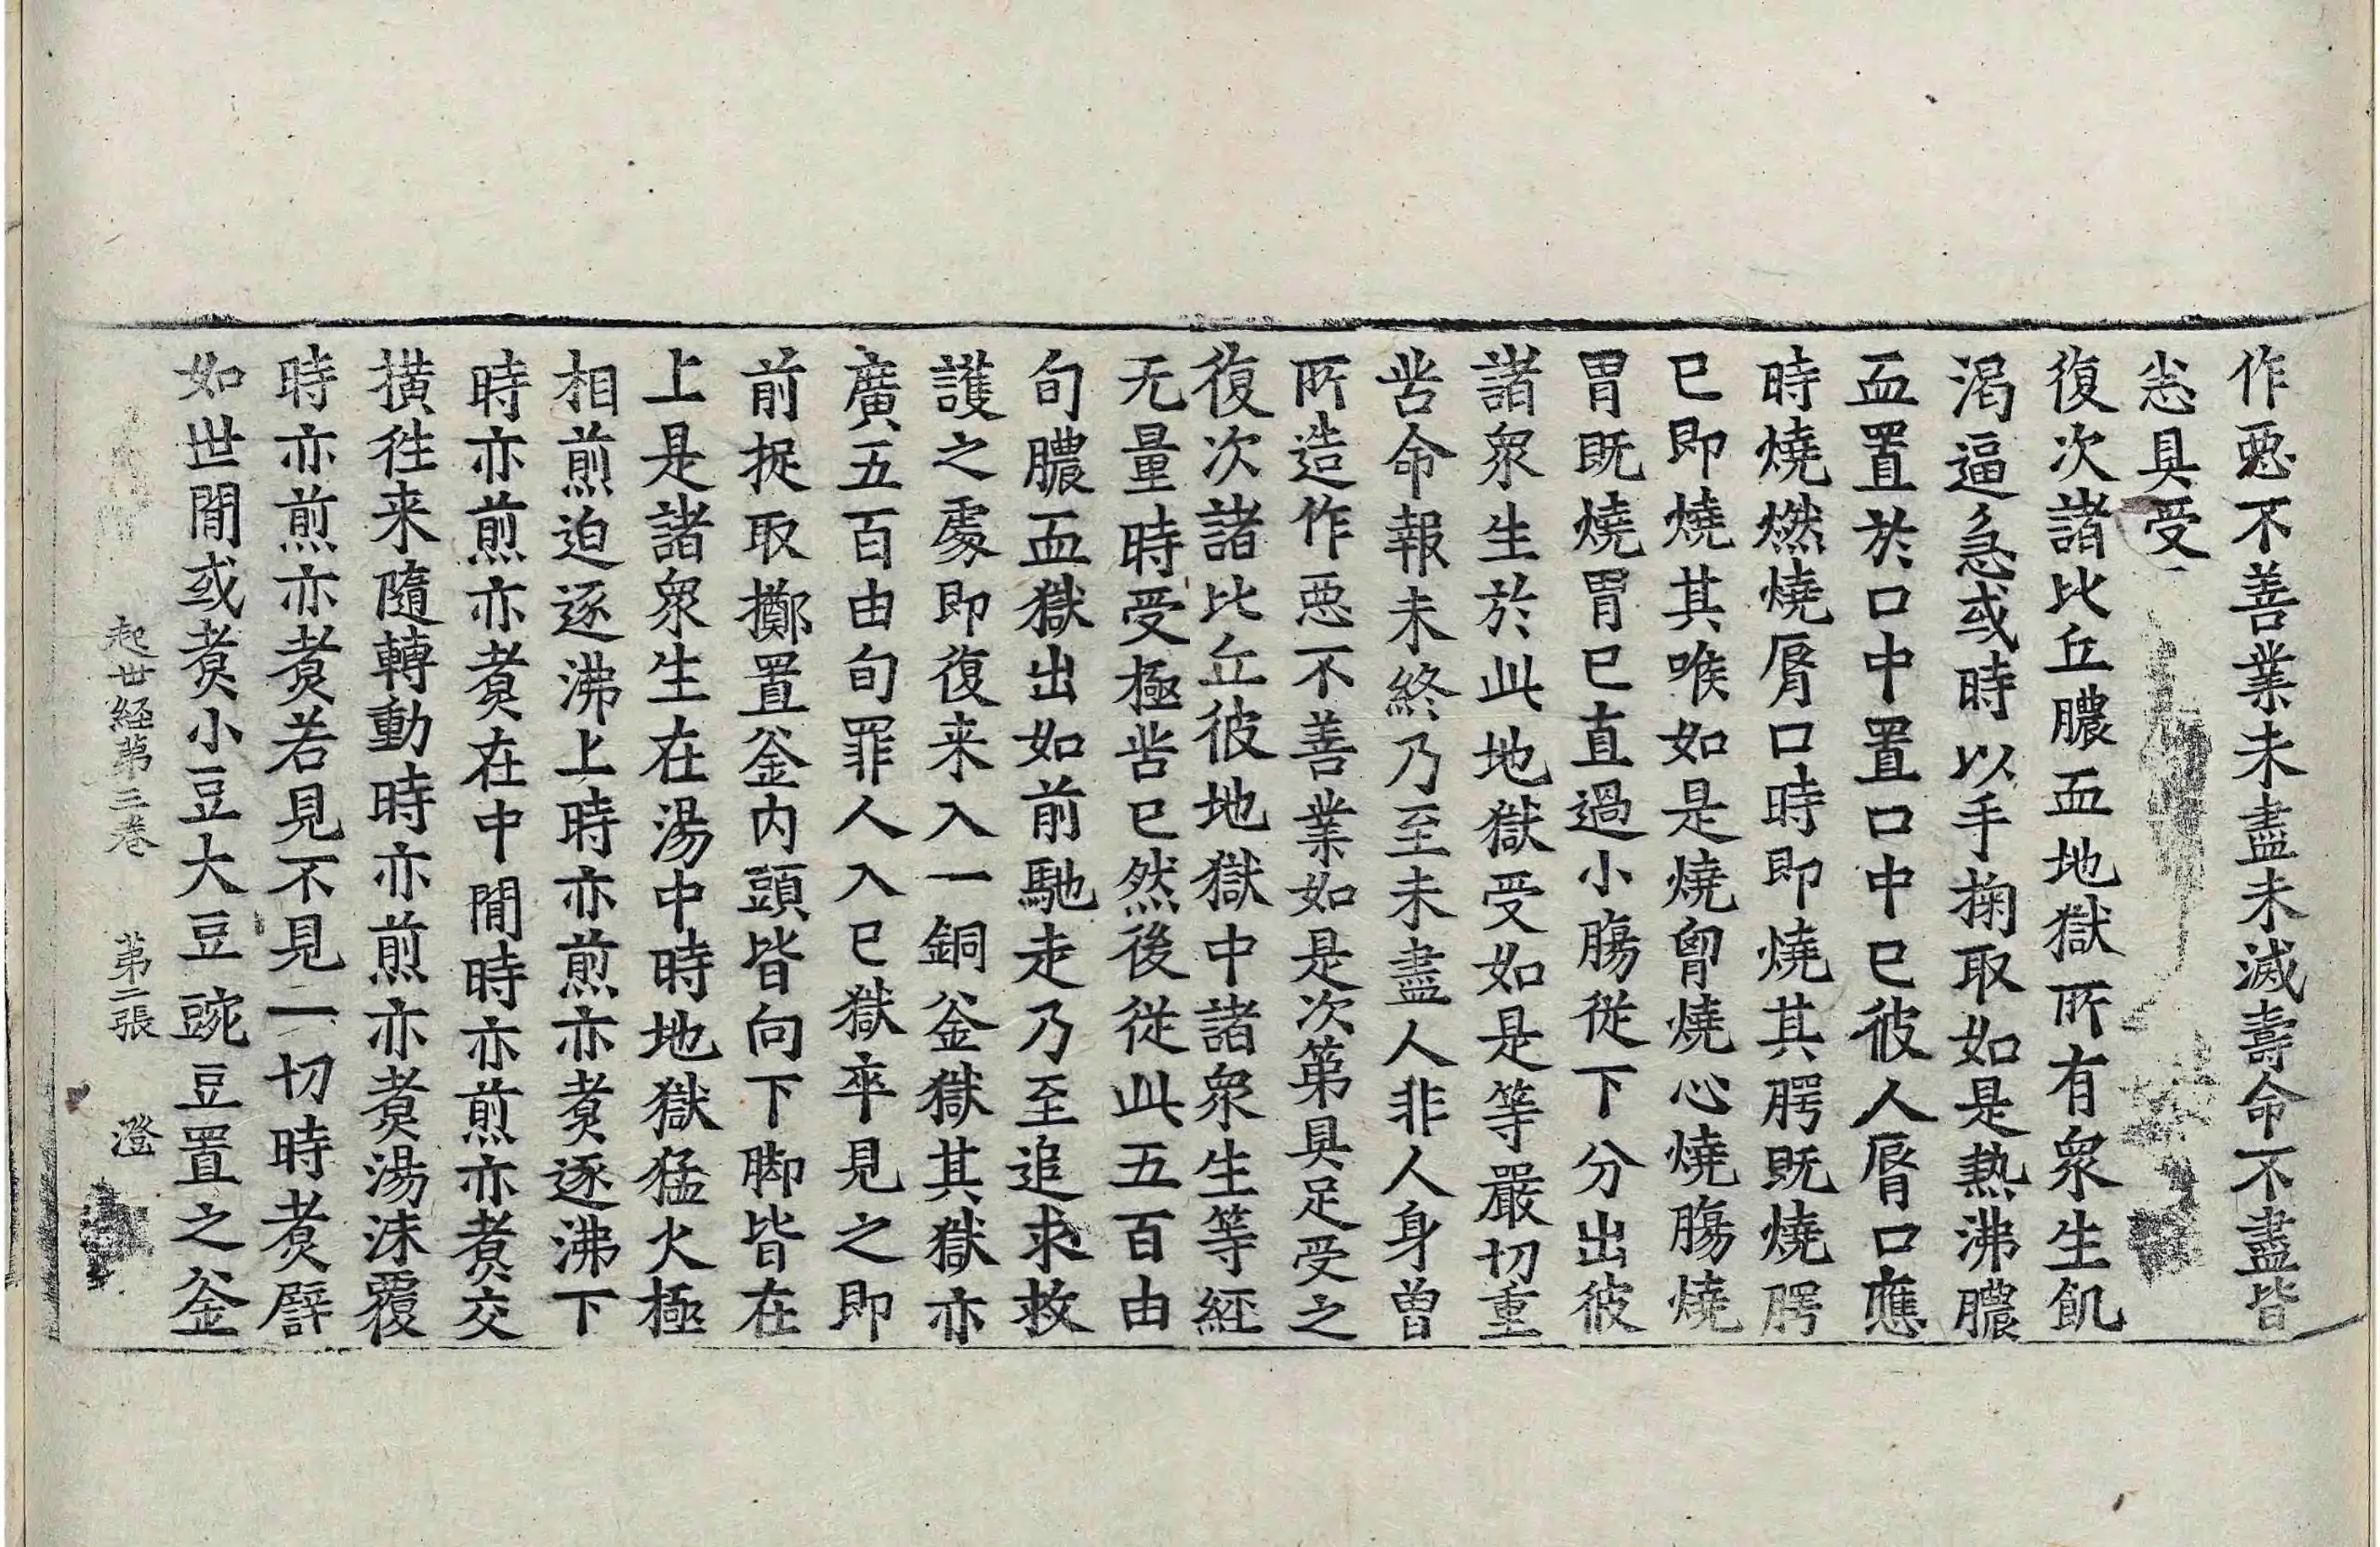 作惡不善業未盡未滅壽命不盡皆
悉具受
復次諸比丘膿血地獄所有衆生飢
渴逼急或時以手掬取如是熱沸膿
血置於口中置口中已彼人脣口應
時燒燃燒脣口時即燒其腭既燒腭
已即燒其喉如是燒胷燒心燒膓燒
胃既燒胃已直過小膓從下分出彼
諸衆生於此地獄受如是等嚴切重
苦命報未終乃至未盡人非人身曾
所造作惡不善業如是次第具足受之
復次諸比丘彼地獄中諸衆生等經
无量時受極苦已然後從此五百由
旬膿血獄出如前馳走乃至追求救
護之處即復来入一銅釜獄其獄亦
廣五百由旬罪人入已獄卒見之即
前捉取擲置釜内頭皆向下脚皆在
上是諸衆生在湯中時地獄猛火極
相煎迫逐沸上時亦煎亦煑逐沸下
時亦煎亦煑在中間時亦煎亦煑交
撗往来隨轉動時亦煎亦煑湯沫覆
時亦煎亦煑若見不見一切時煑譬
如世間或煑小豆大豆豌豆置之釜
起世經第三卷　第二張　澄